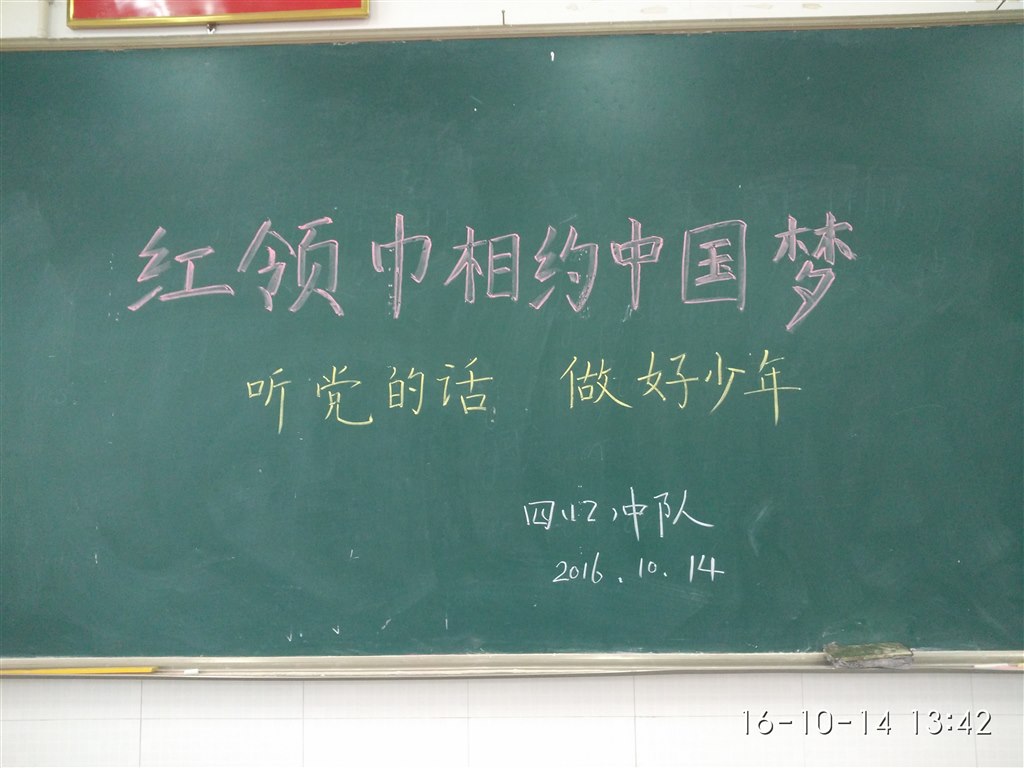 红领巾相约中国梦
听党的话 做好少年
四(12)中队
2016.10.14
16-10-14 13:42